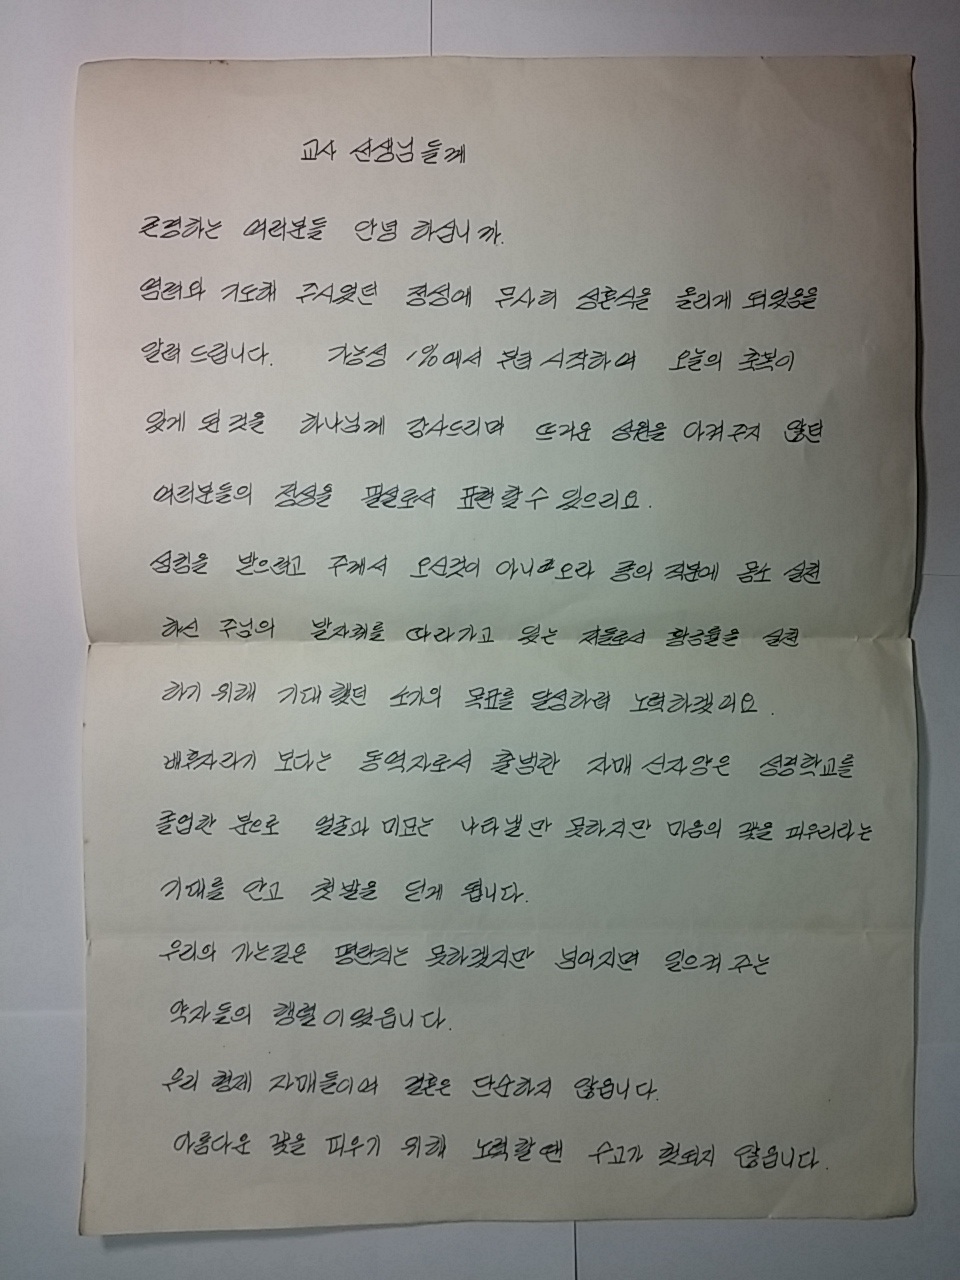 교사 선생님들께
존경하는 여러분들 안녕 하십니까.
염려와 기도해 주시었던 정성에 무사히 성혼식을 올리게 되었음을
알려 드립니다. 가능성 1%에서 부터 시작하여 오늘의 축복이
있게 된 것을 하나님께 감사드리며 뜨거운 성원을 아껴주지 않던
여러분들의 정성을 필설로서 표현 할 수 있으리요.
섬김을 받으려고 주께서 오신것이 아니라 오라 종의 직분에 몸소 실천
하신 주님의 발자취를 따라가고 있는 저들로서 황금률을 실천
하기 위해 기대 했던 소기의 목표를 달성하려 노력하겠어요.
배후자라기 보다는 동역자로서 출범한 자매 신자양은 성경학교를
졸업한 분으로 얼굴과 미모는 나타낼 만 못하지만 마음의 꽃을 피우리라는
기대를 안고 첫발을 딛게 됩니다.
우리의 가는길은 평탄치는 못하겠지만 넘어지면 일으켜 주는
약자들의 행렬이었읍니다.
우리 형제 자매들이여 결혼은 단순하지 않읍니다.
아름다운 꽃을 피우기 위해 노력할 땐 수고가 헛되지 않읍니다.